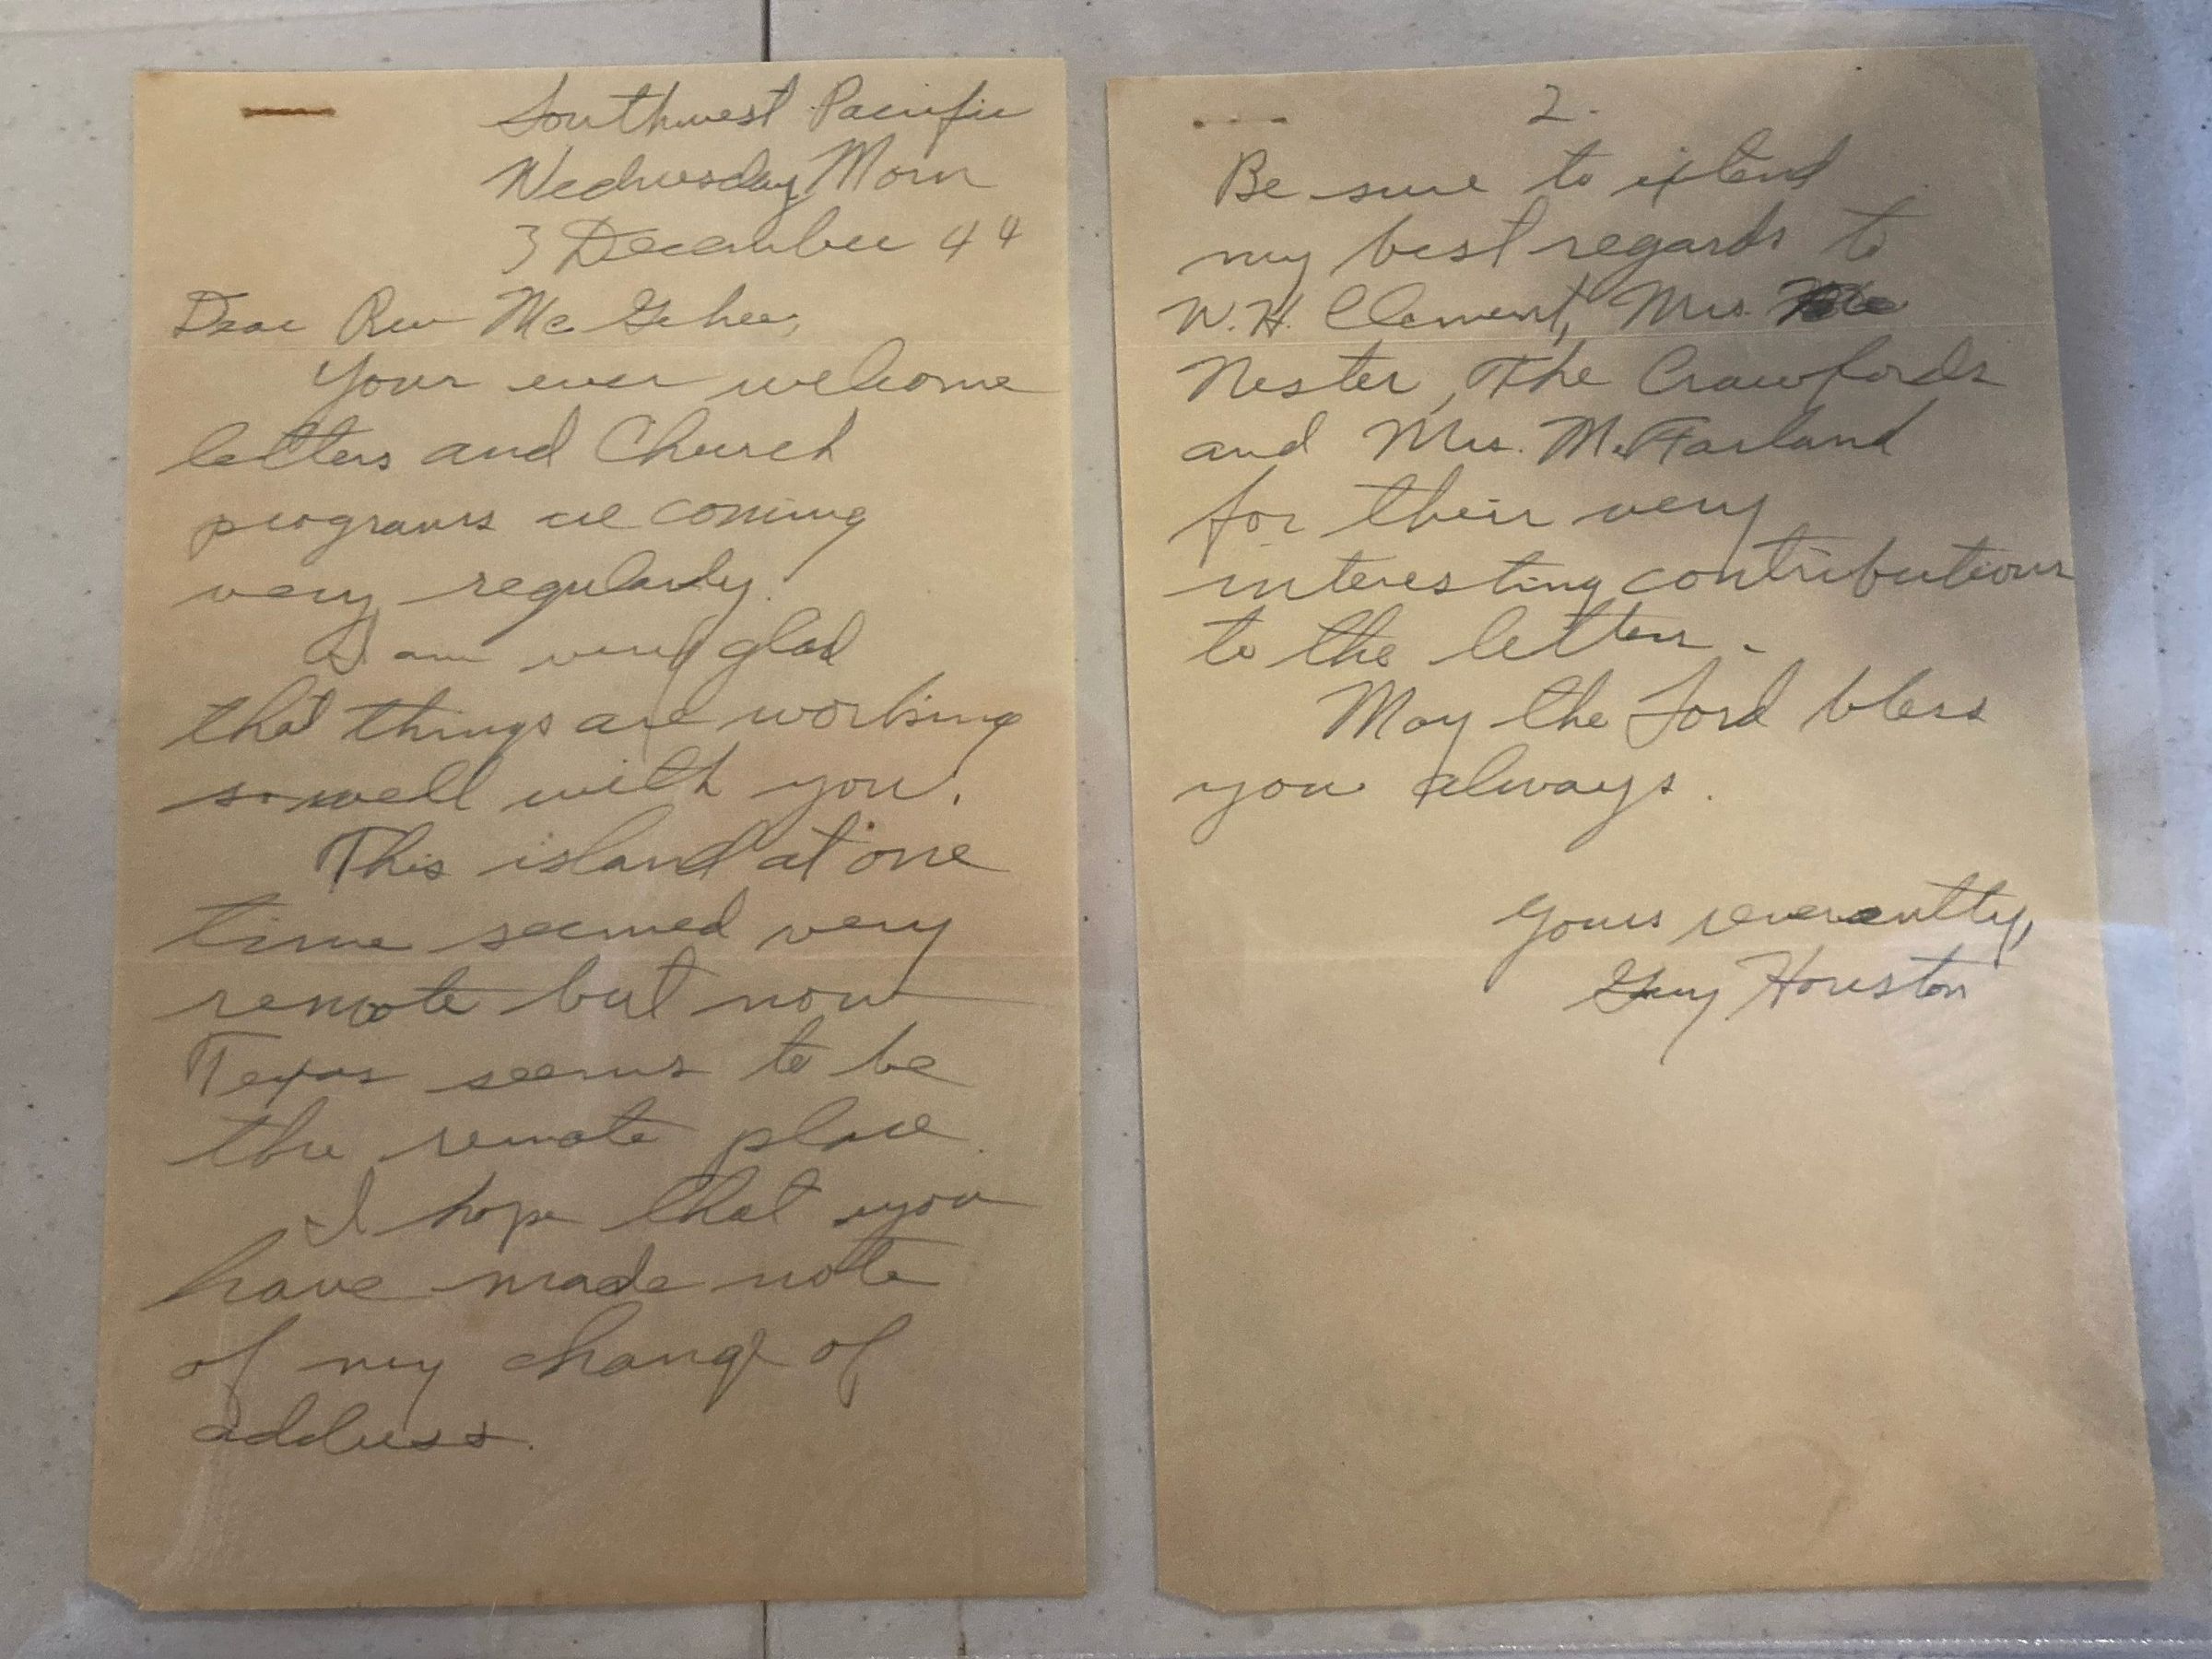 Southwest Pacific
Wednesday Morn
3 December 44
Dear Rev Mc Gehee,
Your ever welcome
letters and Church
programs are coming
very regularly.
I am very glad
that things are working
so well with you.
This island at one
time seemed very
remote but now
Texas seems to be
the remote place.
I hope that you
have made note
of my change of
address.
2.
Be sure to extend
my best regards to
W. H. Clement, Mrs.
Nester, The Crawfords
and Mrs. McFarland
for their very
interesting contributions
to the letters.
May the Lord bless
you always.
Yours reverently,
Guy Houston